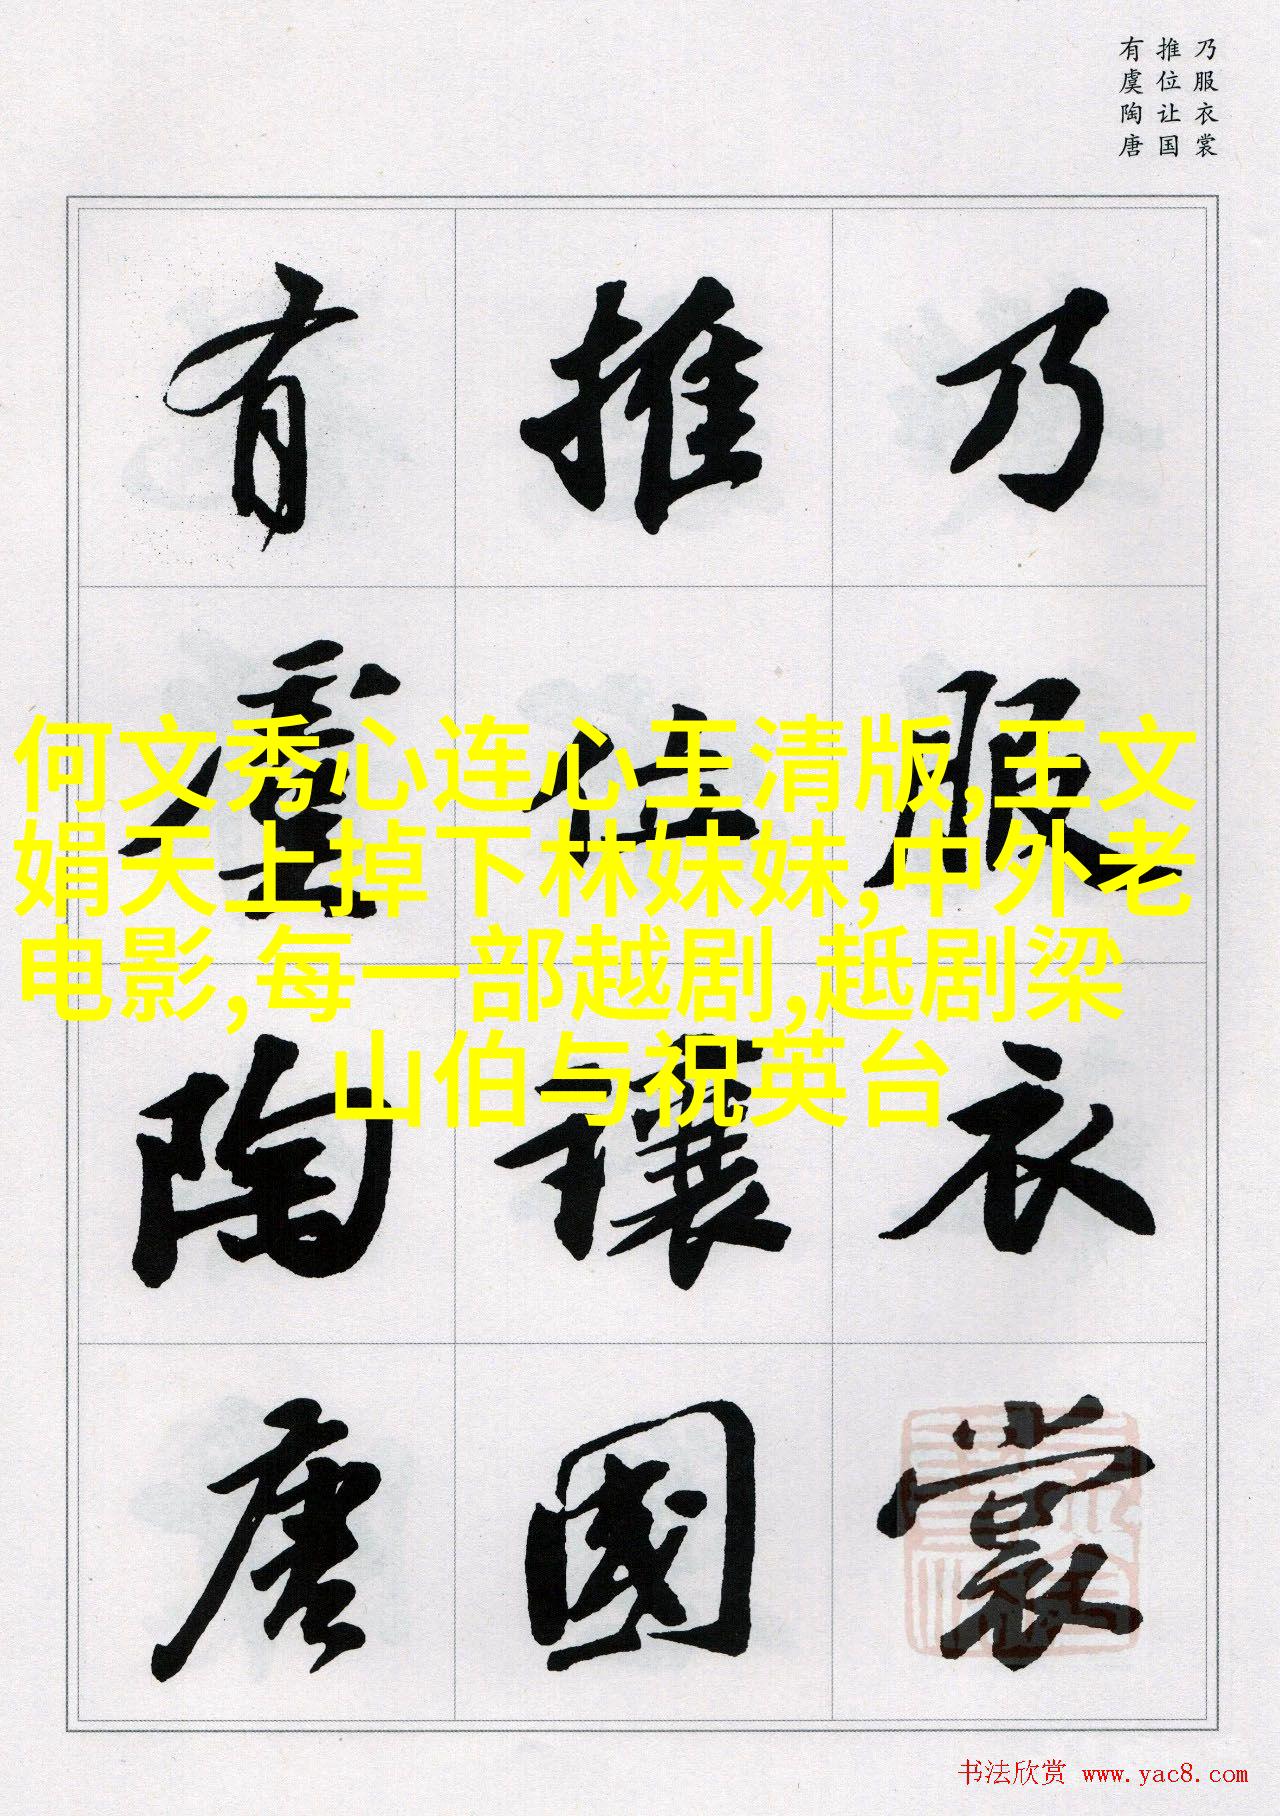 乃服衣裳
推位让国
有虞陶唐
乃服衣裳
推位讓國
有虞陶唐
何文秀心连心王清版,王文
娟天上掉下林妹妹,中外老
电影,每一部越剧,趆剧梁
山伯与祝英台
书法欣赏 www.yac8.com